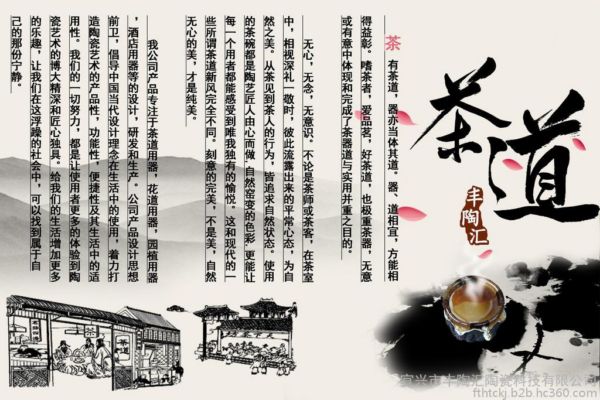 茶道
丰陶汇
茶 有茶道，器亦当体其道。器、道相宜，方能相
得益彰。嗜茶者，爱品茗，好茶道，也极重茶器，无意
或有意中体现和完成了茶器道与实用并重之目的。
无心，无念，无意识。不论是茶师或茶客，在茶室
中，相视深礼一敬时，彼此流露出来的平常心态，为自
然之美。从茶见到茶人的行为，皆追求自然状态。使用
的茶碗都是陶艺匠人由心而做，自然窑变的色彩，更能让
每一个用者都能感受到唯我独有的愉悦。这和现代的一
些所谓茶道新风完全不同。刻意的完美，不是美，自然
无心的美，才是纯美。
我公司产品专注于茶道用器，花道用器，园植用器
，酒店用器等的设计，研发和生产。公司产品设计思想
前卫，倡导中国当代设计理念在生活中的使用，着力打
造陶瓷艺术的产品性，功能性，便捷性及其生活中的适
用性。我们的一切努力，都是让使用者更多的体验到陶
瓷艺术的博大精深和匠心独具。给我们的生活增加更多
的乐趣，让我们在这浮躁的社会中，可以找到属于自
己的那份宁静。
宜兴市丰陶汇陶瓷科技有限公司
fthtckj.b2b.hc360.com